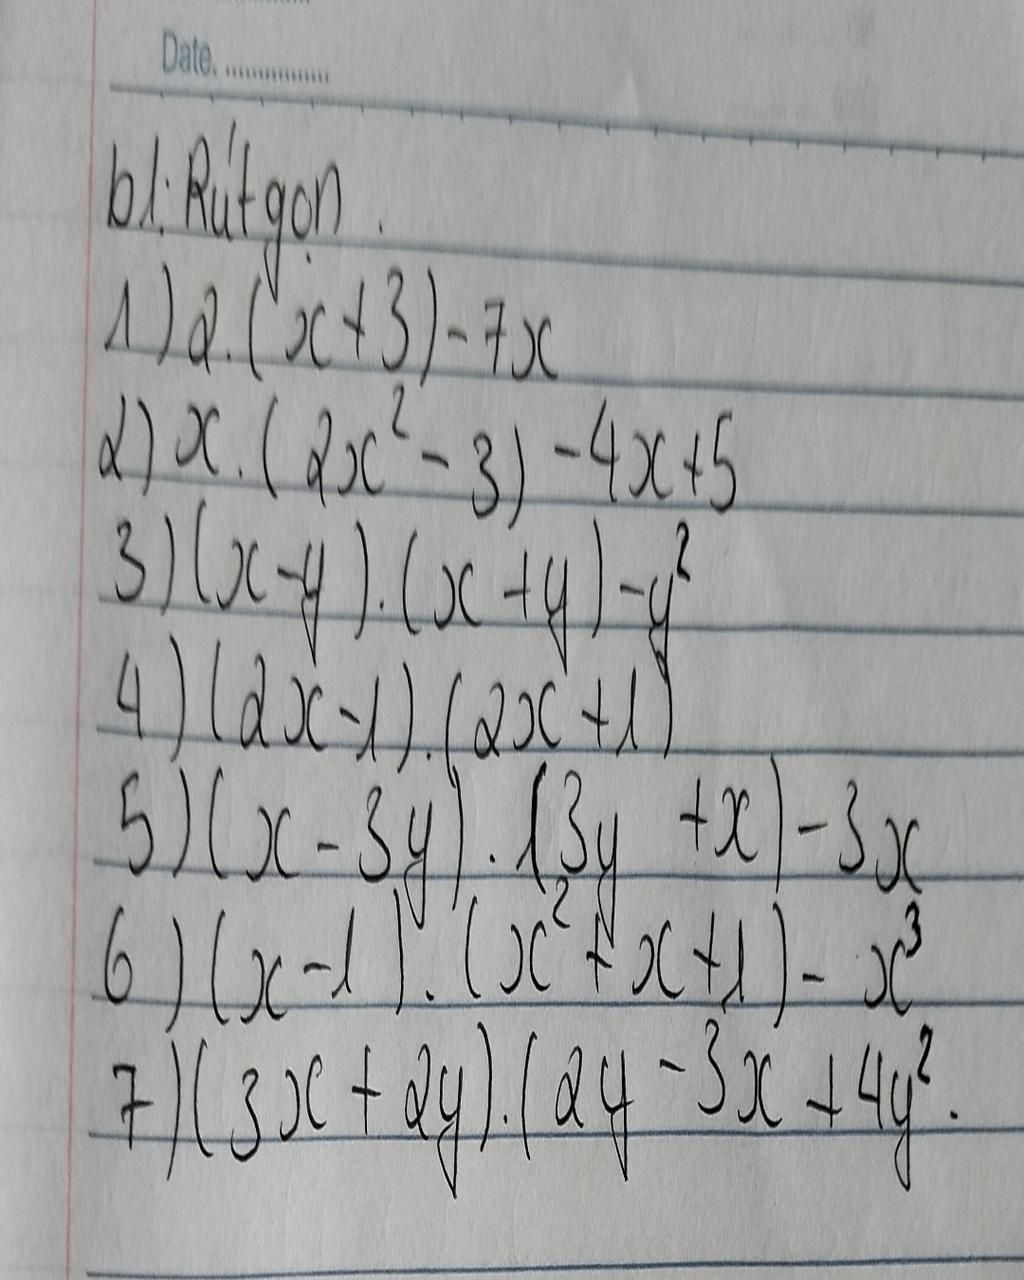 Date. ...............
b1: Rút gọn.
1) 2.(x+3)-7x
2) x.(2x²-3)-4x+5
3) (x-y).(x+y)-y²
4) (2x-1).(2x+1)
5) (x-3y).(3y +x)-3x
6) (x-1).(x²+x+1)-x³
7) (3x+2y).(2y-3x+4y².